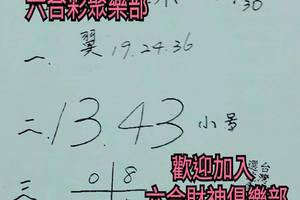 六合彩眾樂部
30
一. 翼 19.24.36
二. 13.43 小号
歡迎加入
台灣
三 0 8
六合財神俱樂部